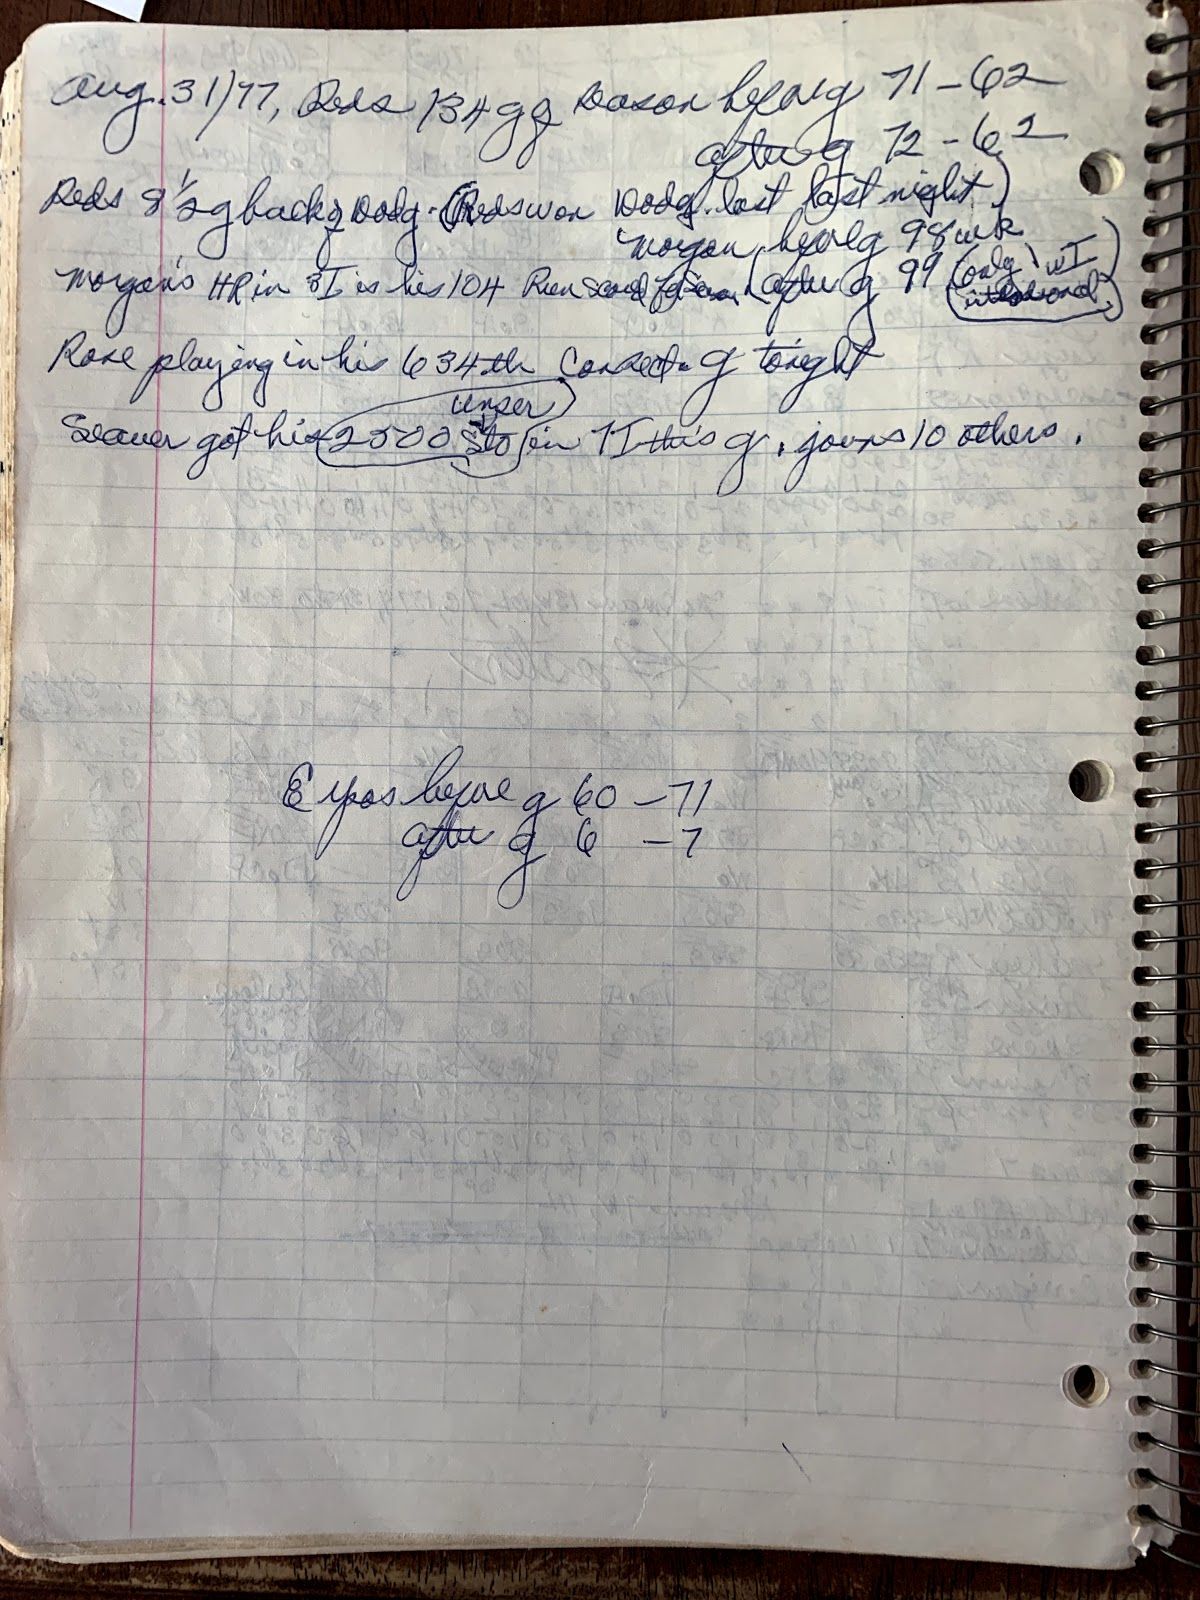 Aug. 31/77, Reds 134 g of season before g 71-62
after g 72-62
Reds 8 1/2 g back of Dodg. (Reds won Dodg. lost last night)
Morgan before g 98 wk
Morgan's HR in 3 I is his 104 Run Scored for Season (after g 99 (only 1 wI
intentional)
Rose playing in his 634th Consect. g tonight
Unser
Seaver got his 2500 Sto in 7 I this g, joins 10 others.
Expos before g 60-71
after g 6 -7